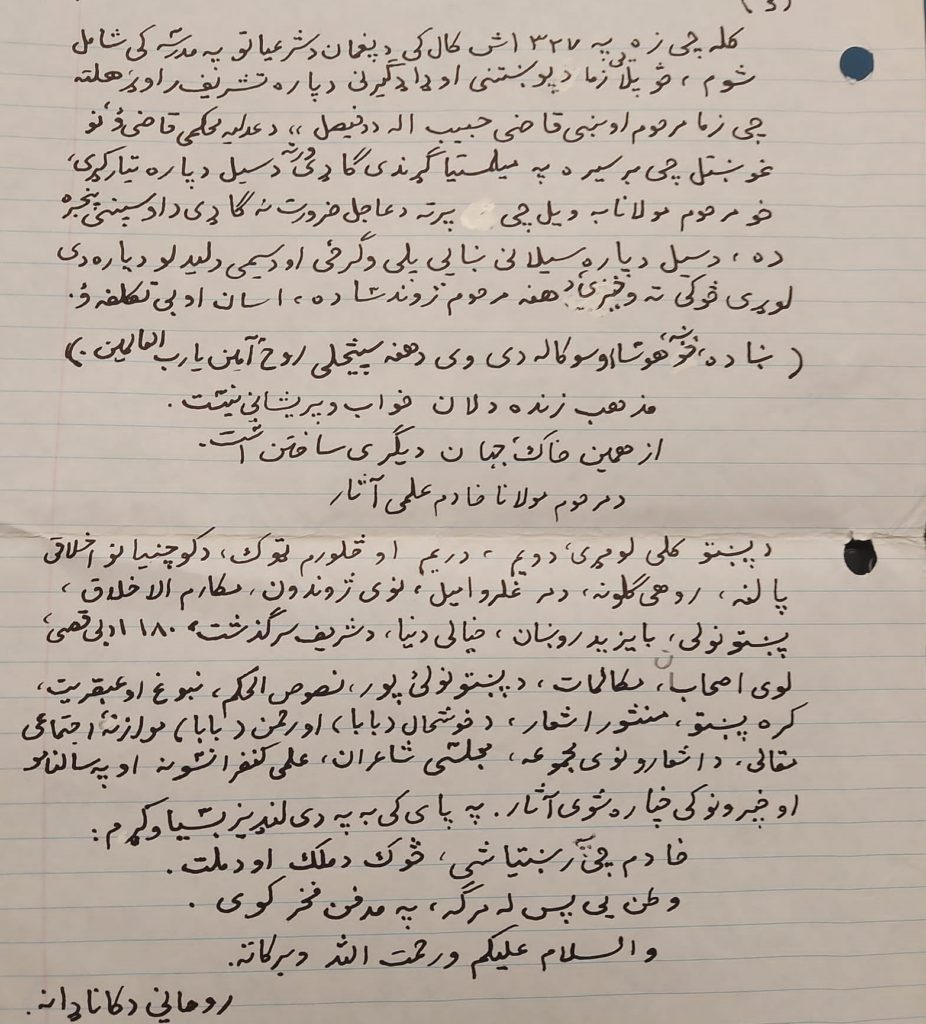 (3)
کله چی زه یٔی په ۱۳۲۷ ش کال کی د پغمان د شرعیاتو په مدرسه کی شامل
شوم، څو پلا زما د پوښتنی او ډاډګیرنی دپاره تشریف راوړ، هلته
چی زما مرحوم اوښی قاضی حبیب اله «فیصل» د عدلیه محکمی قاضی ؤ، نو
غوښتل چی برسیره په میلمستیا ګړندی ګاډی ورته د سیل دپاره تیار کړی،
خو مرحوم مولانا به ویل چی بیرته د عاجل ضرورت نه ګاډی د اوسپنی پنجره
ده، د سیل دپاره سیلانی ښایی پلی وګرځی او د سیمی د لیدلو دپاره دی
لوړی څوکی ته وخیژی، د هغه مرحوم ژوند ساده، اسان او بی تکلفه ؤ.
(ښاده، خوښه، هوسا او سوکاله دی وی د هغه سپیڅلی روح آمین یا رب العالمین.)
مذهب زنده دلان خواب و پریشانی نیست.
از همین خاک جهان دیگری ساختن است.
د مرحوم مولانا خادم علمی آثار
د پښتو کلی لومړی، دویم، دریم او څلورم ټوک، د کوچنیانو اخلاقی
پالنه، روهی ګلونه، د مرغلرو امیل، نوی ژوندون، مکارم الاخلاق،
پښتونولی، بایزید روښان، خیالی دنیا، د شریف سرګذشت، ۱۸۰ ادبی قصی،
لوی اصحابان، مکالمات، د پښتونولئ پور، نصوص الحکم، نبوغ او عبقریت،
کره پښتو، منثور اشعار، د خوشحال (بابا) او رحمن (بابا) موازنه، اجتماعی
مقالی، د اشعارو نوی مجموعه، مجلسی شاعران، علمی کنفرانسونه او په سالنامو
او خپرونو کی خپاره شوی آثار. په پای کی به په دی لنډیز بسیا وکړم:
خادم چی رښتیا شی، څوک د ملک او د ملت.
وطن یی پس له مرګه، په مدفن فخر کوی.
والسلام علیکم ورحمت الله وبرکاته.
روحانی د کاناډا نه.